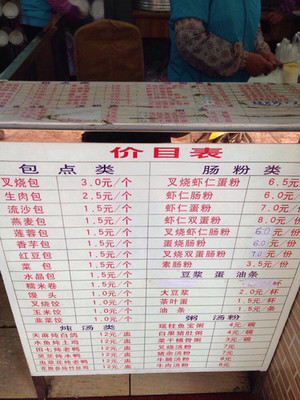 价目表
包点类
叉烧包 3.0元/个
生肉包 2.5元/个
流沙包 1.5元/个
燕麦包 1.5元/个
莲蓉包 1.5元/个
香芋包 1.5元/个
红豆包 1.5元/个
菜包 1.5元/个
水晶包 1.5元/个
糯米卷 2.0元/个
馒头 1.0元/个
叉烧饺 1.5元/个
玉米饺 1.0元/个
韭菜饺 1.0元/个
炖汤类
天麻炖白鸽 12元/盅
田七炖老鸭 12元/盅
肠粉类
叉烧虾仁蛋粉 6.5元
虾仁肠粉 6.0元
虾仁蛋粉 7.0元
虾仁双蛋粉 8.0元
叉烧虾仁粉 6.0元/份
蛋烧肠粉 6.0元/份
叉烧双蛋肠粉 7.0元/份
素肠粉 3.5元/份
豆浆 蛋 油条
大豆浆 2.0元/杯
茶叶蛋 1.5元/杯
油条 1.5元/
粥 汤粉
瑶柱鱼宝粥 4元/碗
白果猪肚粥 4元/碗
菜干桶骨粥 3元/碗
叉烧汤粉 7元/
猪杂汤粉 7元/
牛腩汤粉
牛肉汤粉